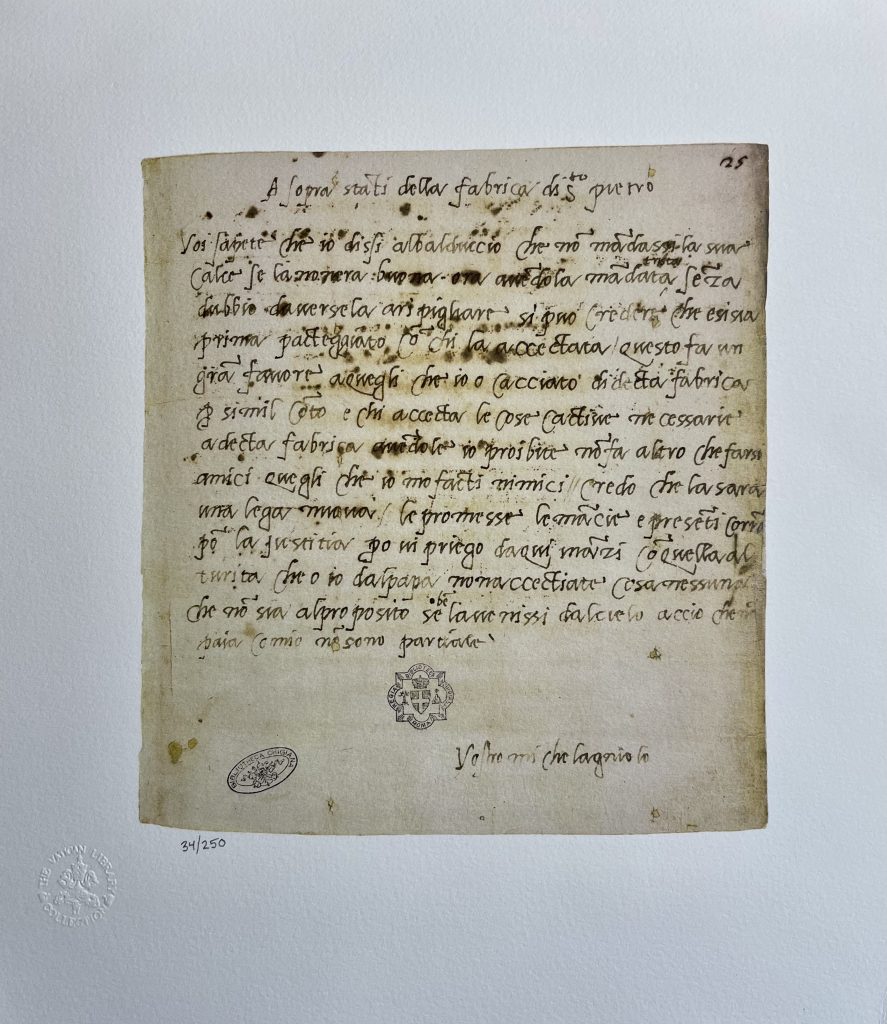 25
A sopra stati della fabrica di Sto pietro
Voi sapete che io dissi albalduccio che nō mādassi la sua
calce se la nonera buona ora avēdola mādata trista sēza
dubbio daversela aripigliare si puo credere che e si sia
prima pacteggiato cō chi la accectata / questo fa un
grā favore aquegli che io o cacciato didecta fabrica
p simil cōto e chi accecta le cose cactive necessarie
adecta fabrica avēdole io proibite nōfa altro che farsi
amici quegli che io mo facti nimici // credo che la sara
una lega nuova / le promesse le mācie e presēti corrō
pō la justitia po vi priego daqui ināzi cō quella al
turita che o io dalpapa nonaccectiate cosa nessuna
che nō sia alproposito se be la venissi dal cielo accio che nō
paia comio nō sono partiale
Vostro michelagniolo
BIBLIOTHECA CHIGIANA
34/250
THE VATICAN LIBRARY
COLLECTION